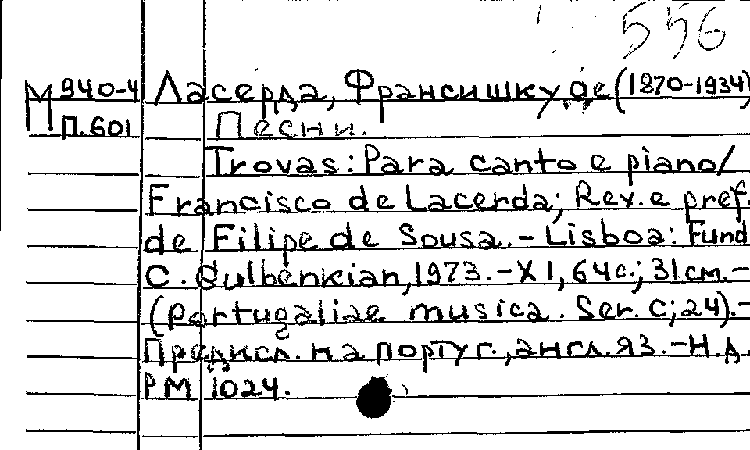 556
М 940-4 Ласерда, Франсишку де (1870-1934)
П.601 Песни.
Trovas: Para canto e piano/
Francisco de Lacerda; Rev. e pref.
de Filipe de Sousa. - Lisboa: Fund.
C. Gulbenkian, 1973. - XI, 64c.; 31см. -
(Portugaliae musica. Ser. C; 24). -
Предисл. на португ., англ. яз. - Н.д.
РМ 1024.